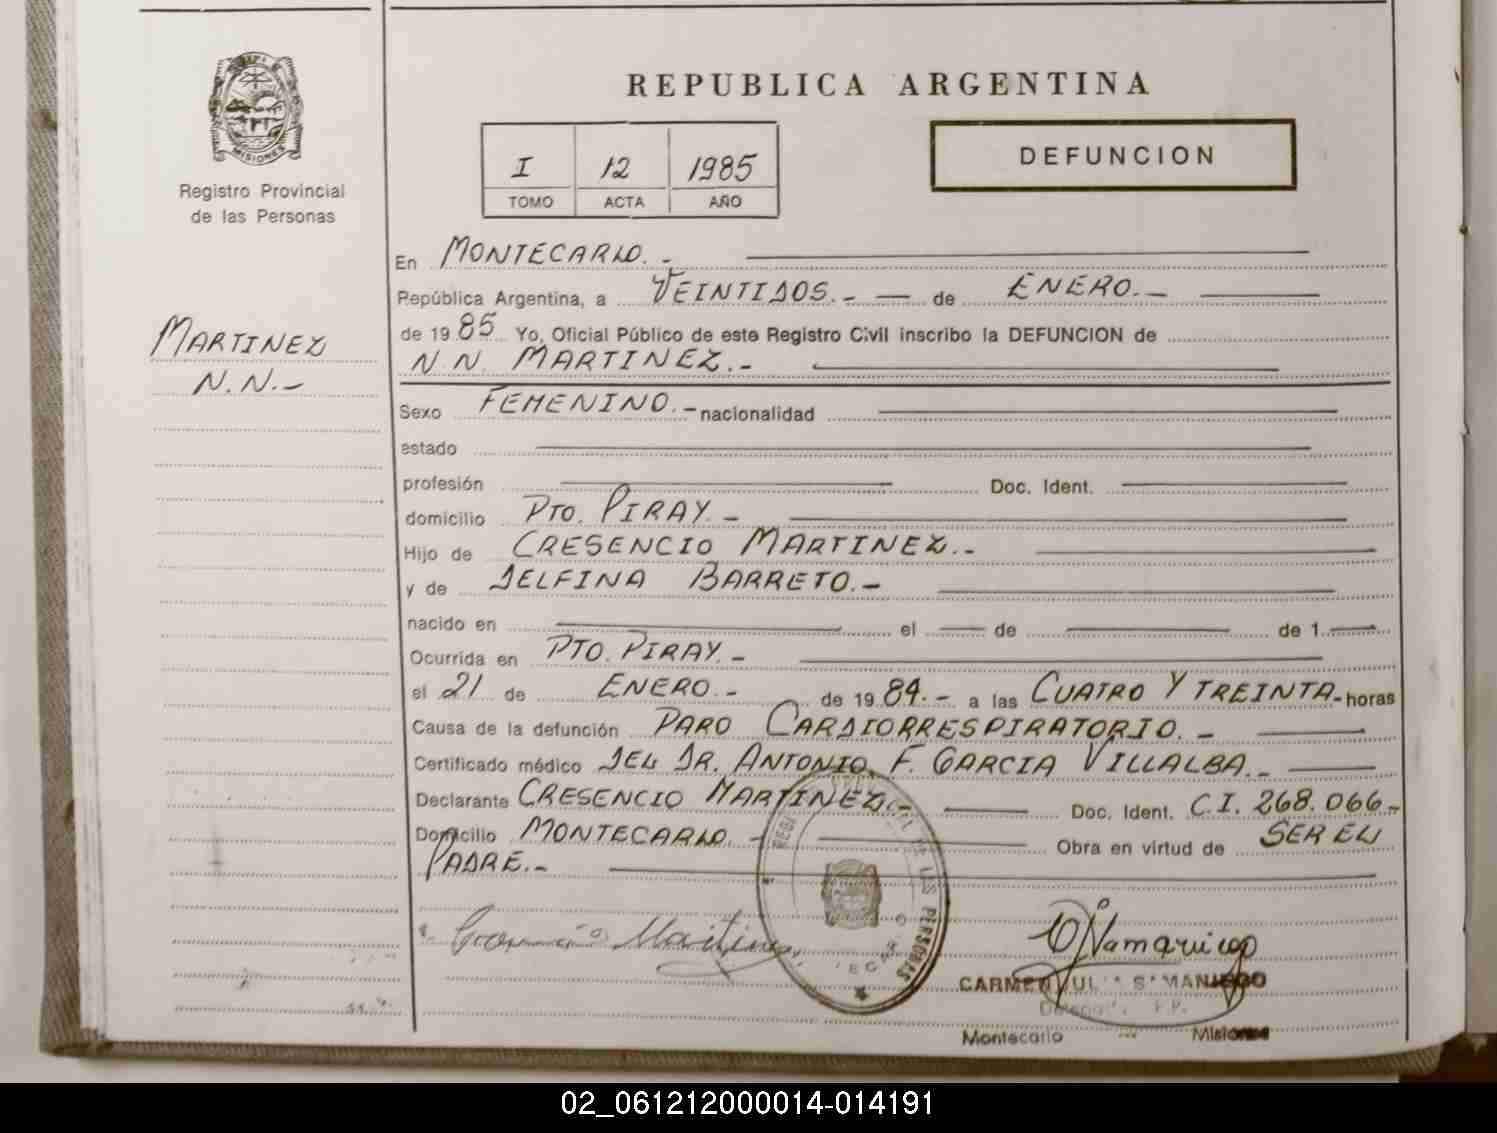 REPUBLICA ARGENTINA
MISIONES
Registro Provincial
de las Personas
I 12 1985
TOMO ACTA AÑO
DEFUNCION
MARTINEZ
N.N.-
En MONTECARLO.-
República Argentina, a VEINTIDOS.- — de ENERO.-
de 1985 Yo, Oficial Público de este Registro Civil inscribo la DEFUNCION de
N.N. MARTINEZ.-
Sexo FEMENINO.- nacionalidad
estado
profesión Doc. Ident.
domicilio PTO. PIRAY.-
Hijo de CRESENCIO MARTINEZ.-
y de DELFINA BARRETO.-
nacido en el de de 1
Ocurrida en PTO. PIRAY.-
el 21 de ENERO.- de 1984.- a las CUATRO Y TREINTA- horas
Causa de la defunción PARO CARDIORRESPIRATORIO.-
Certificado médico DEL DR. ANTONIO F. GARCIA VILLALBA.-
Declarante CRESENCIO MARTINEZ.- Doc. Ident. C.I. 268.066-
Domicilio MONTECARLO.- Obra en virtud de SER EL
PADRE.-
DE LAS PERSONAS
CARMEN
Montecarlo Misiones
02_061212000014-014191